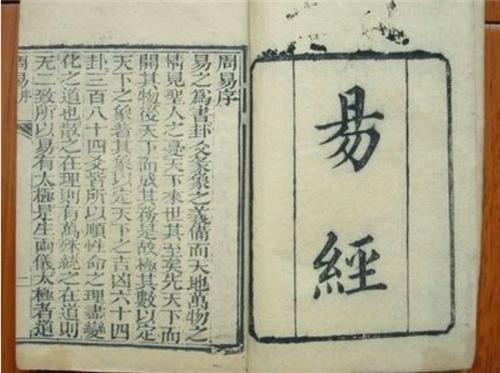 易經
周易序
易之爲書卦爻彖象之義備而天地萬物之
情見聖人之憂天下來世其至矣先天下而
開其物後天下而成其務是故極其數以定
天下之象著其象以定天下之吉凶六十四
卦三百八十四爻皆所以順性命之理盡變
化之道也散之在理則有萬殊統之在道則
无二致所以易有太極是生兩儀太極者道
周易序
一